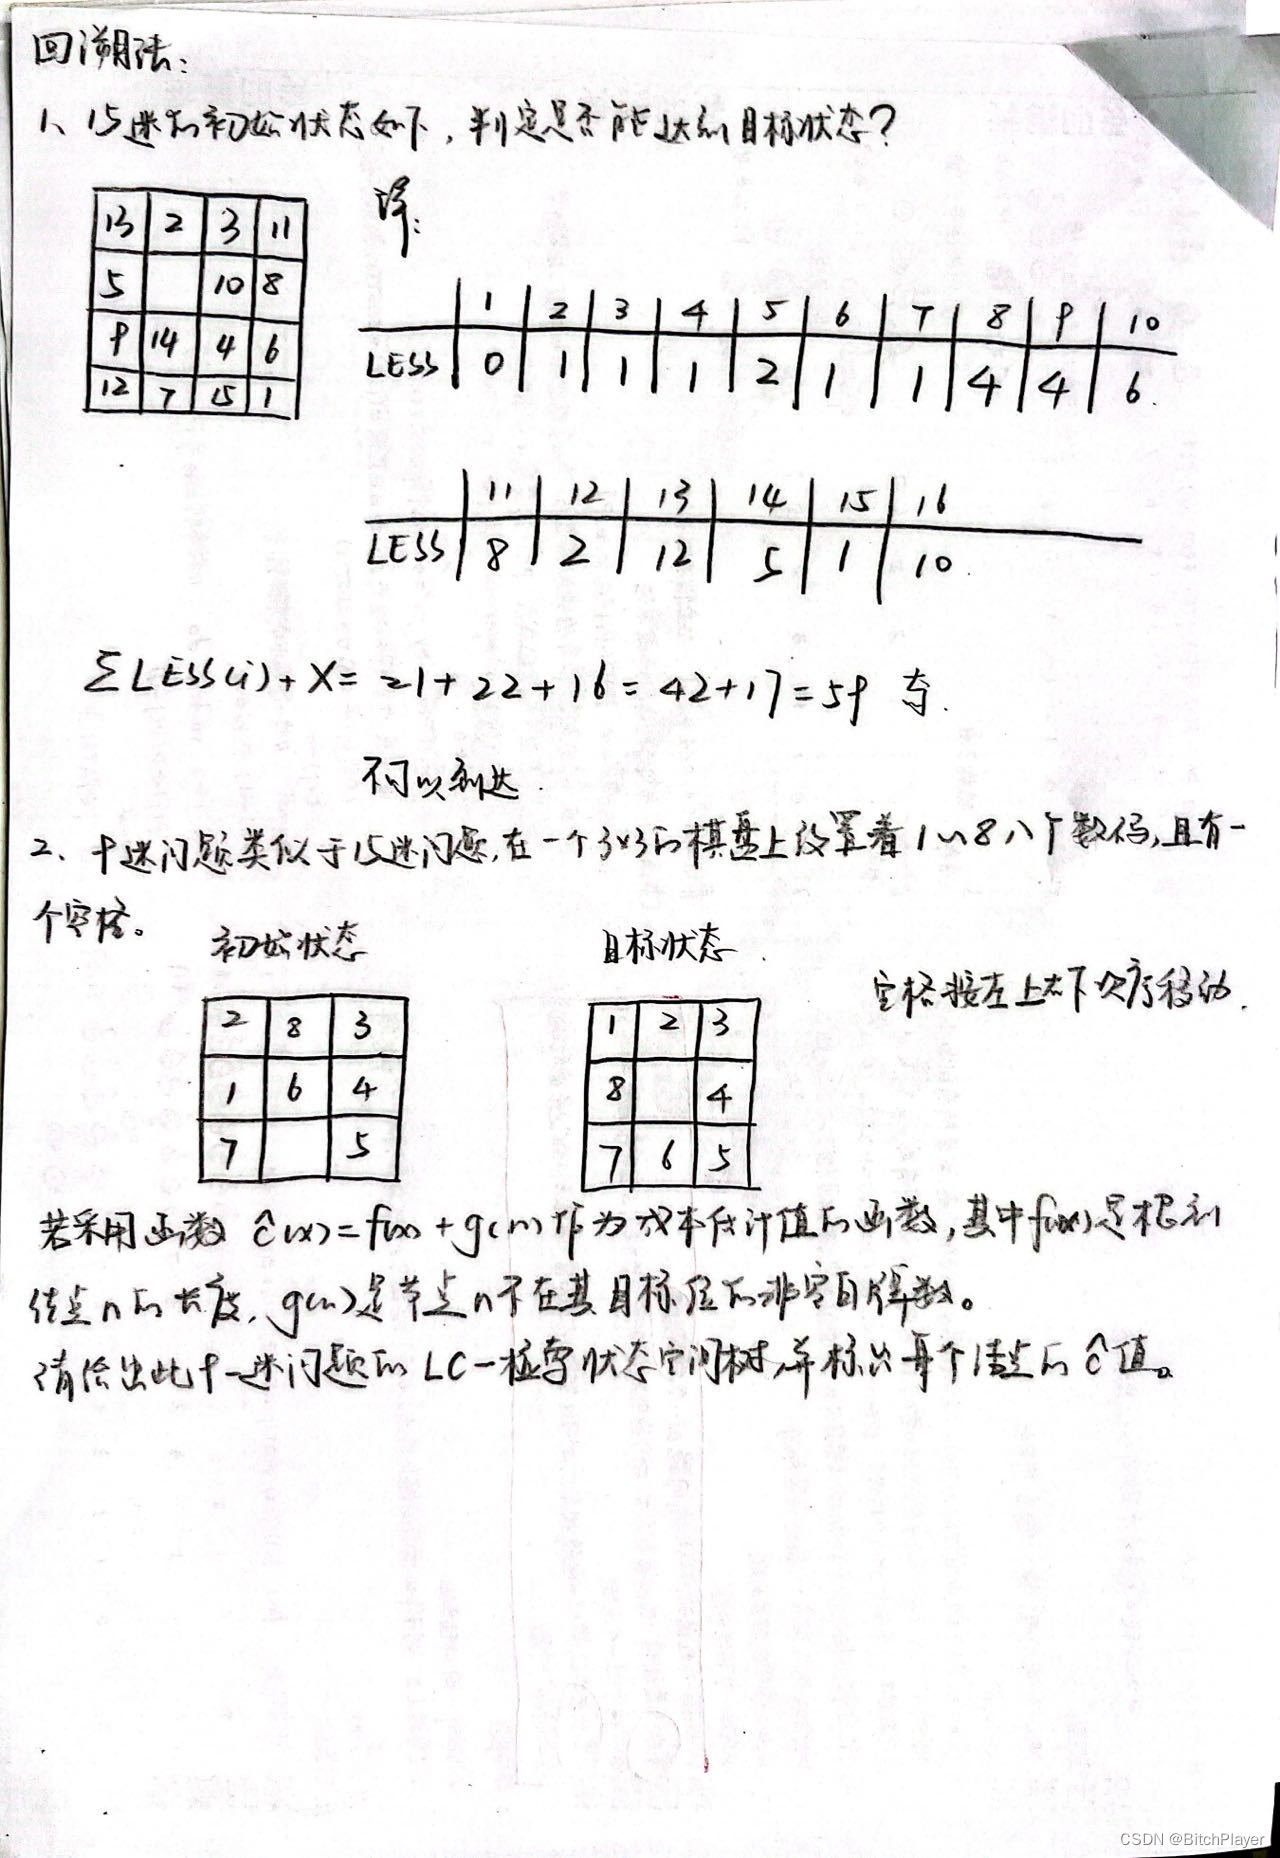 回溯法:
1、15迷的初始状态如下,判定是否能达到目标状态?
13 2 3 11
5 10 8
9 14 4 6
12 7 15 1
译:
1 2 3 4 5 6 7 8 9 10
LESS 0 1 1 1 2 1 1 4 4 6
11 12 13 14 15 16
LESS 8 2 12 5 1 10
ΣLESS(i)+X=21+22+16=42+17=59 奇.
不可以到达.
2、九迷问题类似于15迷问题,在一个3×3的棋盘上设置着1~8八个数码,且有一
个空格。
初始状态
目标状态
空格按左上右下次序移动.
2 8 3
1 6 4
7 5
1 2 3
8 4
7 6 5
若采用函数 ĉ(x)=f(x)+g(n)作为成本估计值的函数,其中f(x)是根到
结点n的长度,g(n)是节点n不在其目标位的非空白牌数。
请绘出此九迷问题的LC-检索状态空间树,并标出每个结点的ĉ值。
CSDN @BitchPlayer